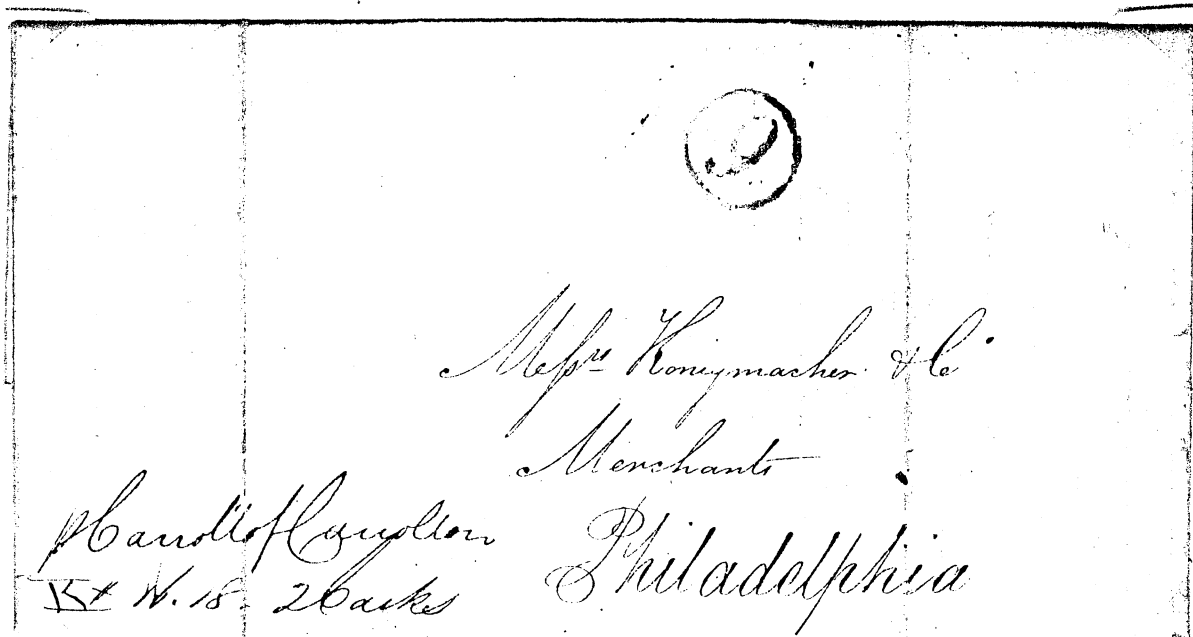 Messrs Konigmacher & Co
Merchants
Philadelphia
p Carroll of Carrollton
K+ N. 18 - 2 Casks